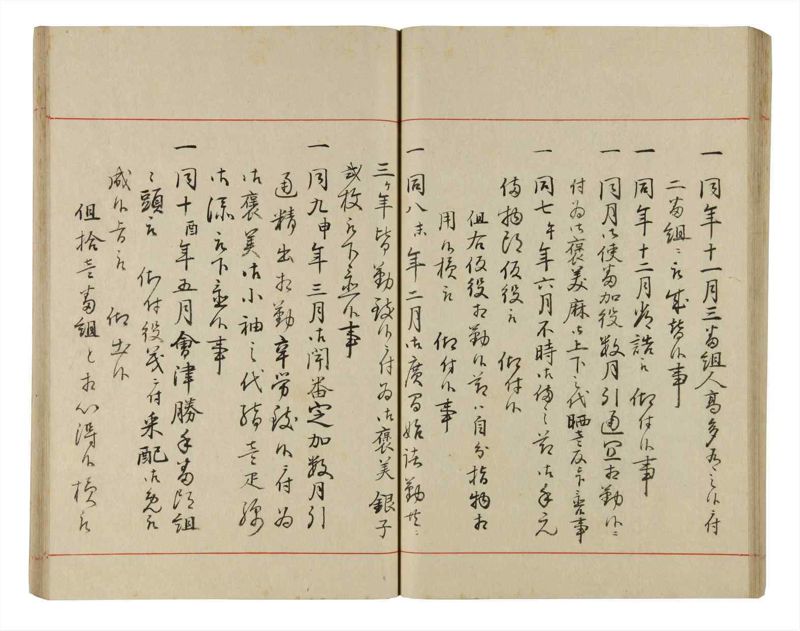 一 同年十一月三番組人高多有之候付
二番組ニ被成替候事
一 同年十二月常詰被仰付候事
一 同月御使番加役数月引通冝相勤候ニ
付為御褒美麻御上下之代晒壱反被下置候事
一 同七午年六月不時御備之節御手元
備物頭仮役被 仰付候
但右仮役相勤候節ハ自分指物相
用候様被 仰付候事
一 同八未年二月御廣間始諸勤
三ヶ年皆勤致候付為御褒美銀子
弐枚被下置候事
一 同九申年三月御開番定加数月引
通精出相勤辛労致候付為
御褒美御小袖之代積壱疋
御流被下置候事
一 同十酉年五月會津勝手番頭組
之頭被 仰付役義付采配御免被
成候旨被 仰出候
但拾壱番組と相心得候様被